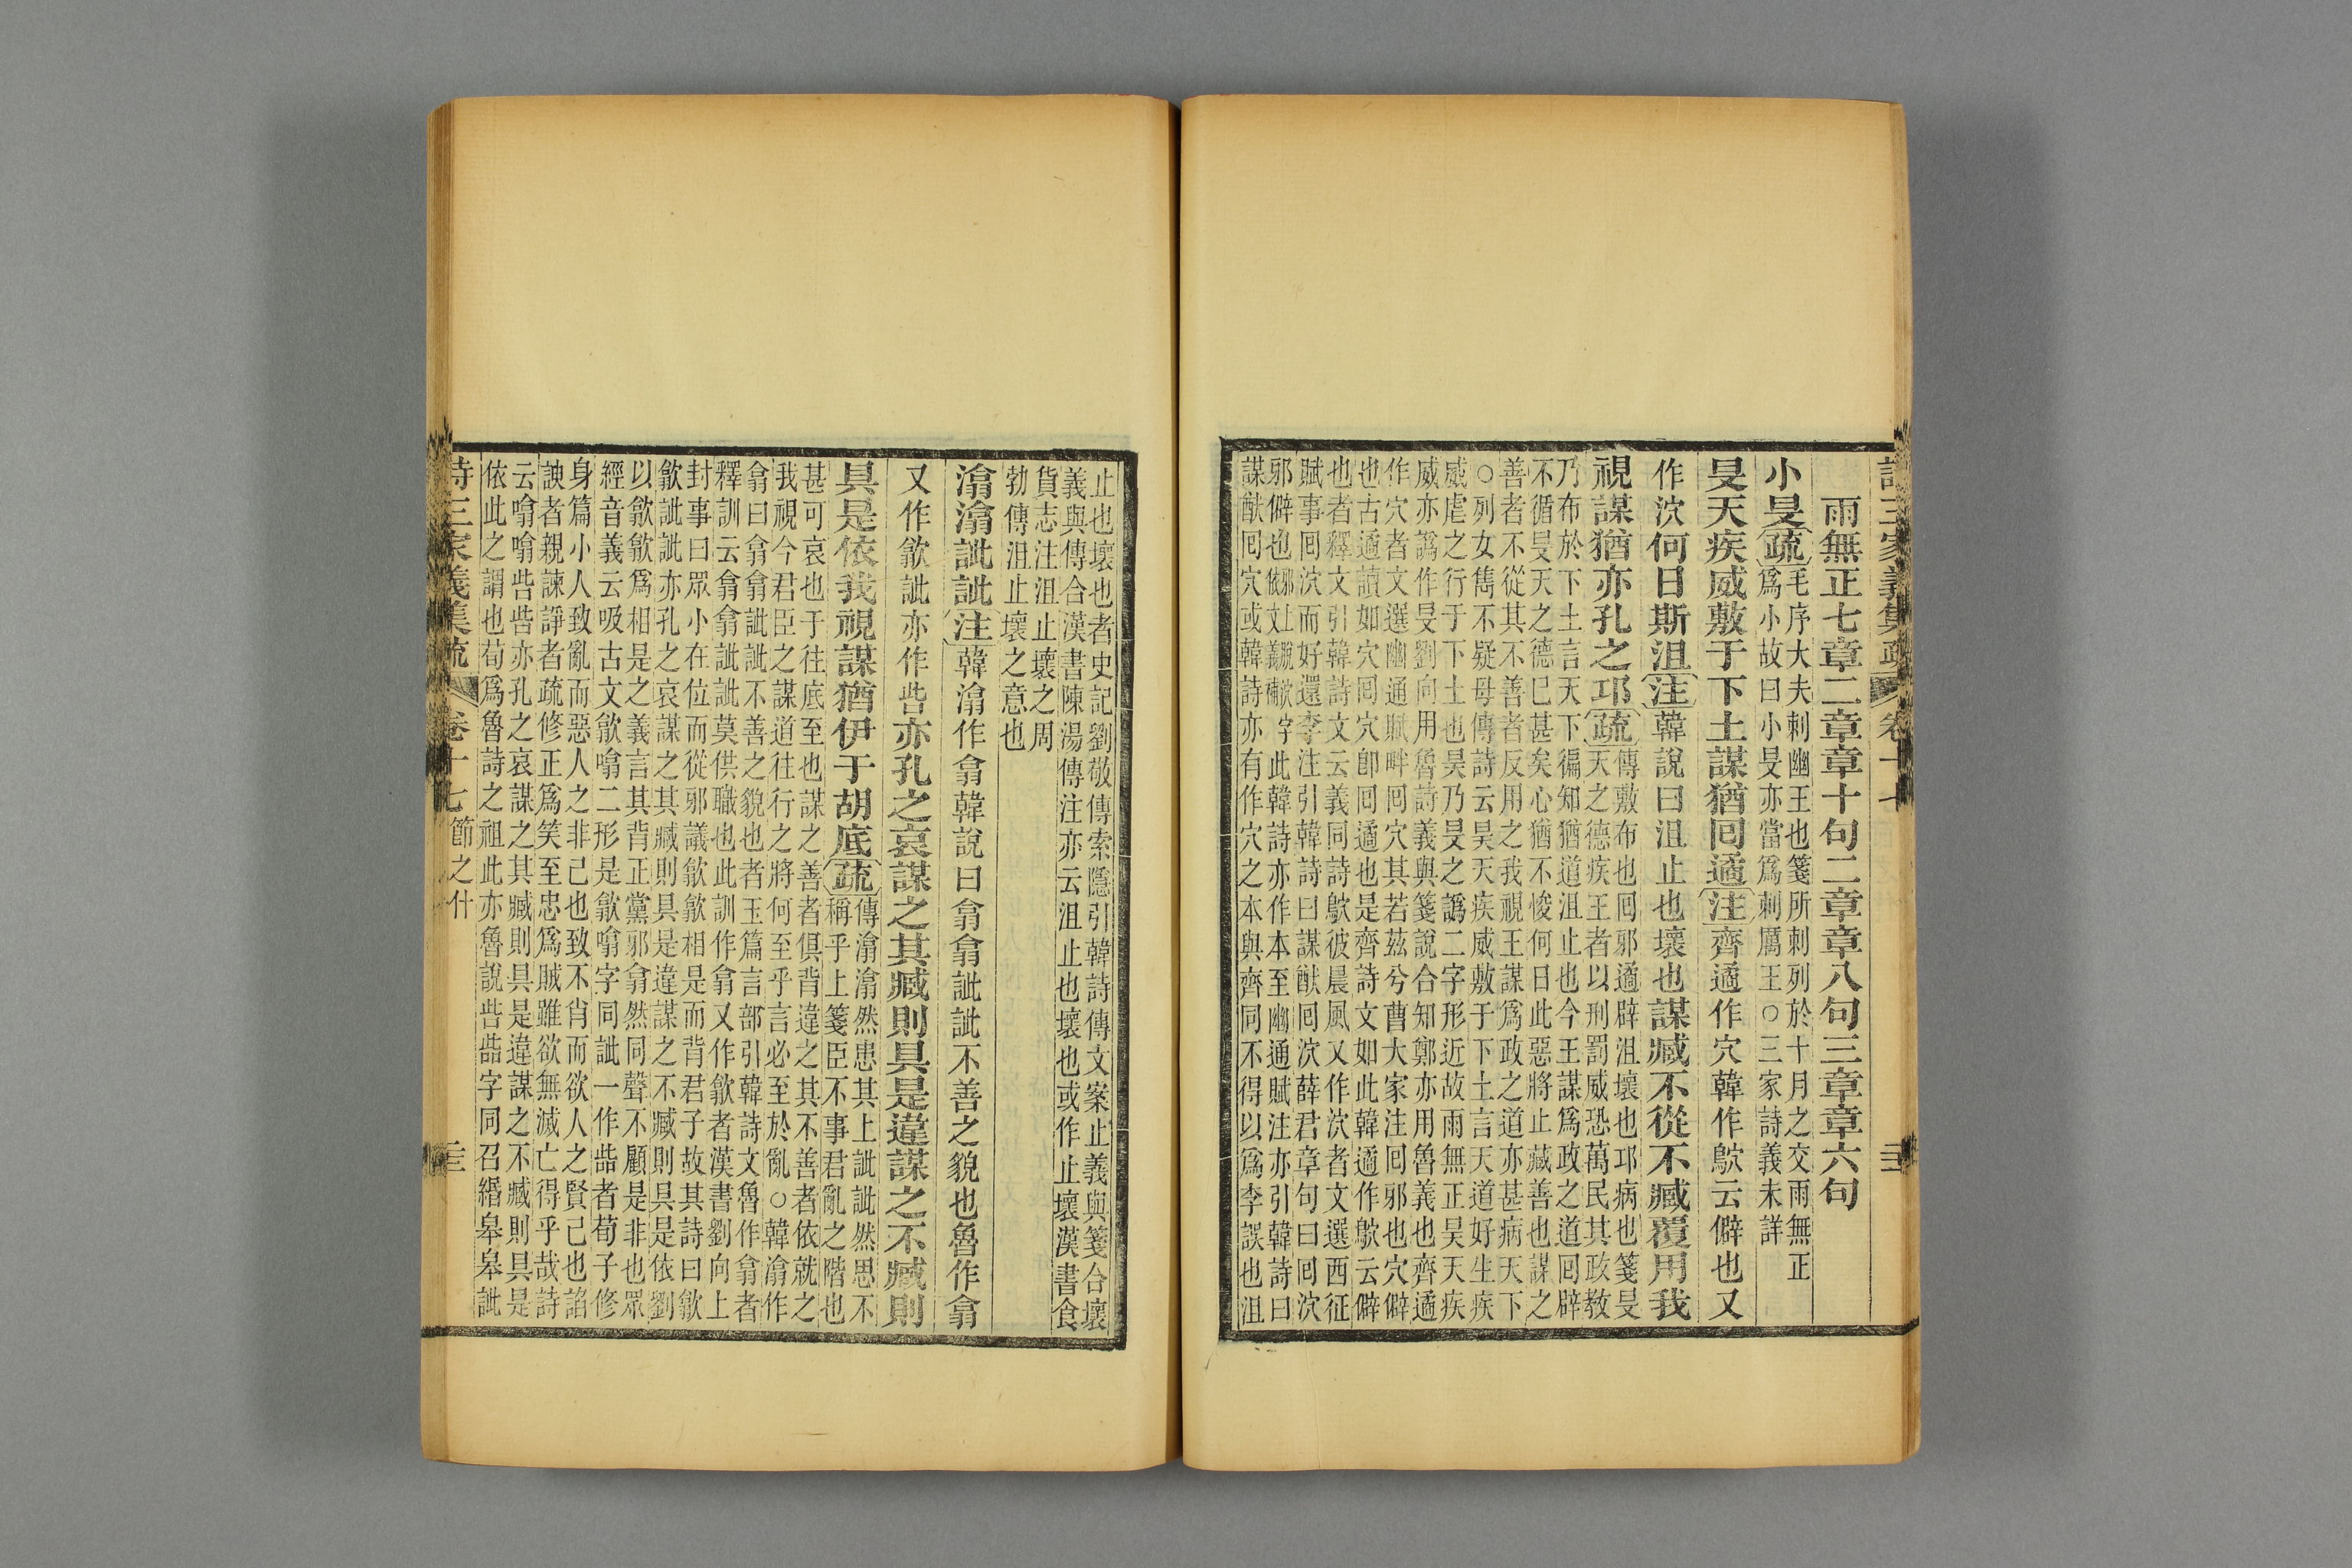 詩三家義集疏 卷十七
雨無正七章二章章十句二章章八句三章章六句
小旻疏毛序大夫刺幽王也箋所刺列於十月之交雨無正
爲小故曰小旻亦當爲刺厲王○三家詩義未詳
旻天疾威敷于下土謀猶回遹注齊遹作穴韓作鴥云僻也又
作泬何日斯沮注韓說曰沮止也壞也謀臧不從不臧覆用我
視謀猶亦孔之邛疏傳敷布也回邪遹辟沮壞也邛病也箋旻
天之德疾王者以刑罰威恐萬民其政教
乃布於下土言天下徧知猶道沮止也今王謀爲政之道回辟
不循旻天之德已甚矣心猶不悛何日此惡將止藏善也謀之
善者不從其不善者反用之我視王謀爲政之道亦甚病天下
○列女雋不疑母傳詩云昊天疾威敷于下土言天道好生疾
威虐之行于下土也昊乃旻之譌二字形近故雨無正昊天疾
威亦譌作旻劉向用魯詩義與箋說合知鄭亦用魯義也齊遹
作穴者文選幽通賦畔回穴其若茲兮曹大家注回邪也穴僻
也古遹讀如穴回穴卽回遹也是齊詩文如此韓遹作鴥云僻
也者釋文引韓詩文云義同詩鴥彼晨風又作泬者文選西征
賦事回泬而好還李注引韓詩曰謀猷回泬薛君章句曰回泬
邪僻也此韓詩亦作本至幽通賦注亦引韓詩曰
謀猷回穴或韓詩亦有作穴之本與齊同不得以爲李誤也沮
止也壞也者史記劉敬傳索隱引韓詩傳文案止義與箋合壞
義與傳合漢書陳湯傳注亦云沮止也壞也或作止壞漢書食
貨志注沮止壞之周
勃傳沮止壞之意也
潝潝訿訿注韓潝作翕韓說曰翕翕訿訿不善之貌也魯作翕
又作歙訿亦作呰亦孔之哀謀之其臧則具是違謀之不臧則
具是依我視謀猶伊于胡底疏傳潝潝然患其上訿訿然思不
稱乎上箋臣不事君亂之階也
甚可哀也于往底至也謀之善者俱背違之其不善者依就之
我視今君臣之謀道往行之將何至乎言必至於亂○韓潝作
翕曰翕翕訿訿不善之貌也者玉篇言部引韓詩文魯作翕者
釋訓云翕翕訿訿莫供職也此訓作翕又作歙者漢書劉向上
封事曰眾小在位而從邪議歙歙相是而背君子故其詩曰歙
歙訿訿亦孔之哀謀之其臧則具是違謀之不臧則具是依劉
以歙歙爲相是之義言其背正黨邪翕然同聲不顧是非也眾
經音義云吸古文歙噏二形是歙噏字同訿一作呰者荀子修
身篇小人致亂而惡人之非己也致不肖而欲人之賢己也諂
諛者親諫諍者疏修正爲笑至忠爲賊雖欲無滅亡得乎哉詩
云噏噏呰呰亦孔之哀謀之其臧則具是違謀之不臧則具是
依此之謂也荀爲魯詩之祖此亦魯說呰㗨字同召緡皋皋訿
詩三家義集疏 卷十七 節之什